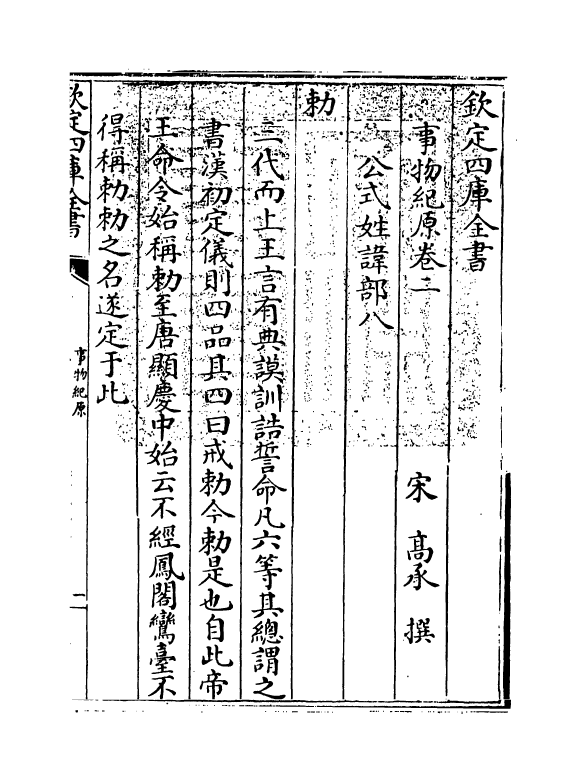 欽定四庫全書
事物紀原卷二 宋 高承 撰
公式姓諱部八
勅
三代而上王言有典謨訓誥誓命凡六等其總謂之
書漢初定儀則四品其四曰戒勅今勅是也自此帝
王命令始稱勅至唐顯慶中始云不經鳳閣鸞臺不
得稱勅勅之名遂定于此
欽定四庫全書
事物紀原
二